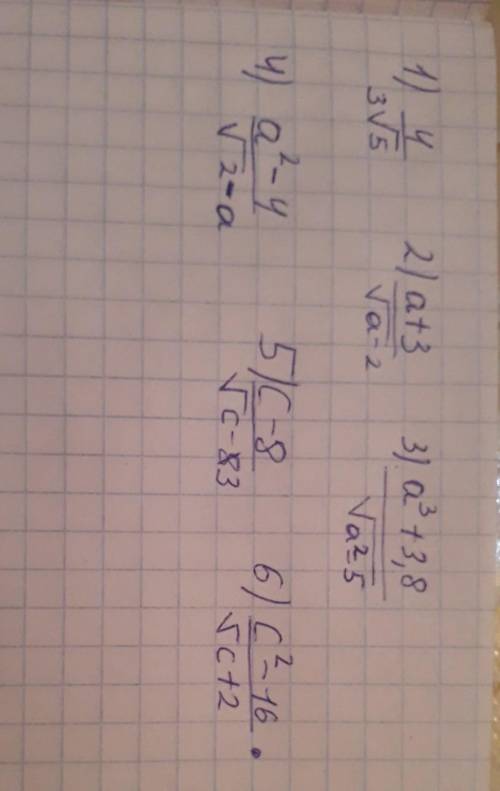 1) 4/3√5 2) a+3/√a-2 3) a³+3,8/√a²-5
4) a²-4/√2-a 5) c-8/√c-83 6) c²-16/√c+2.